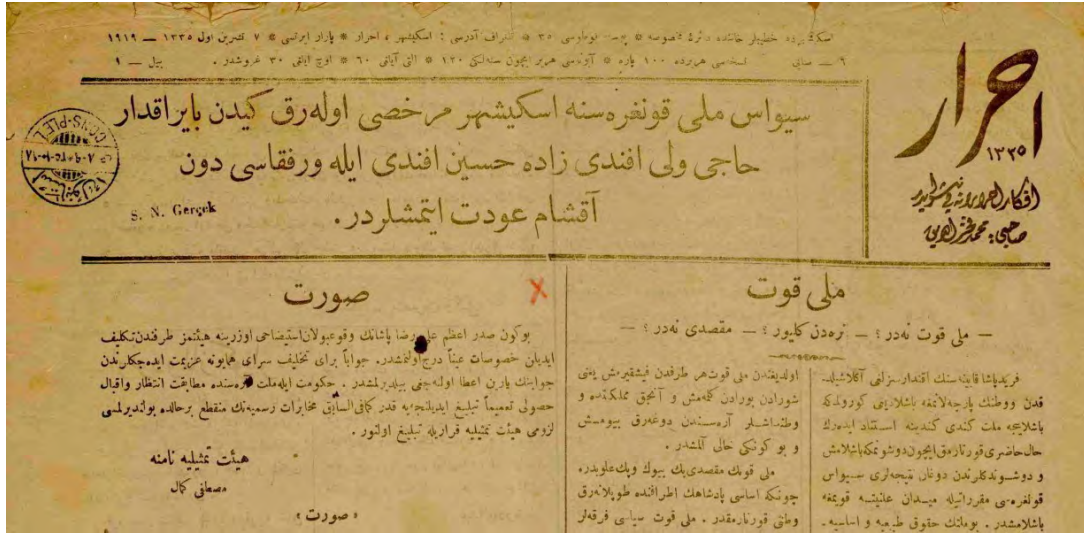 احرار
١٣٣٥
صاحبى : محمد فخرالدين
٦ — صايى
نسخه‌سى هر يرده ١٠٠ پاره
التى آيلغى ٦٠ * اوچ آيلغى ٣٠ غروشدر .
ييل — ١
٧ تشرين اول ١٣٣٥ — ١٩١٩
سيواس ملى قونغره‌سنه اسكيشهر مرخصى اوله‌رق كيدن بايراقدار
حاجى ولى افندى زاده حسين افندى ايله ورفقاسى دون
آقشام عودت ايتمشلردر .
S. N. Gerçek
ملى قوت
— ملى قوت نه‌در ؟ — نره‌دن كليور ؟ — مقصدى نه‌در ؟ —
فريد پاشا قابينه‌سنك اقتدارسزلغى آكلاشيلد-
قدن و وطنك پارچه‌لانمغه باشلاديغى كورولدكه
باشليجه ملت كندى كندينه استناد ايده‌رك
حال حاضرى قورتارمق ايچون دوشونمكه باشلامش
و دوشوندكلرندن دوغان نتيجه‌لرى سيواس
قونغره‌سى مقرراتيله ميدان علنيته قويمغه
باشلامشدر . بومانك حقوق طبيعيه و اساسيه-
اولديغندن ملى قوت هر طرفدن فيشقيرمش يعنى
شورادن بورادن كلمه‌مش و آنجق مملكتده و
وطنداشلر آره‌سندن دوغه‌رق بيومش
و بو كونكى حالى آلمشدر .
ملى قوتك مقصدى پك بيوك وپك علويدر .
چونكه اساسى پادشاهك اطرافنده طوپلانه‌رق
وطنى قورتارمقدر . ملى قوت سياسى فرقه‌لر
صورت
بوكون صدر اعظم على رضا پاشانك وقوعبولان استيضاحى اوزرينه هيئتمز طرفندن تكليف
ايديلن خصوصات عيناً درج اولنمشدر . جواباً براى تحليف سراى همايونه عزيمت ايده‌جكلرندن
جوابنك يارين اعطا اولنه‌جغى بيلديرلمشدر . حكومت ايله ملت آره‌سنده مطابقت انتظار واقبال
حصولى تعميماً تبليغ ايديلنجه‌يه قدر كمافى‌السابق مخابرات رسميه‌نك منقطع برحالده بولنديرلمسى
لزومى هيئت تمثيليه قراريله تبليغ اولنور .
هيئت تمثيليه نامنه
مصطفى كمال
« صورت »